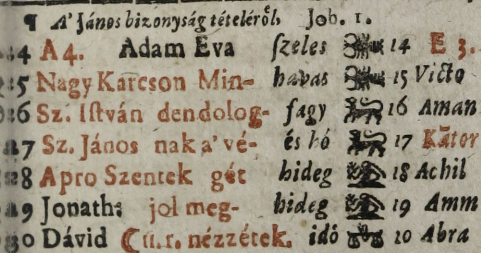 ¶ A' János bizonyság tételéről. Job. 1.
24 A 4. Adam Eva szeles 14 E 3.
25 Nagy Karcson Min- havas 15 Victo
26 Sz. Iſtván dendolog- fagy 16 Aman
27 Sz. János nak a' vé- és hó 17 Kator
28 Apro Szentek gét hideg 18 Achil
29 Jonath: jol meg- hideg 19 Amm
30 Dávid nézzétek. idő 20 Abra